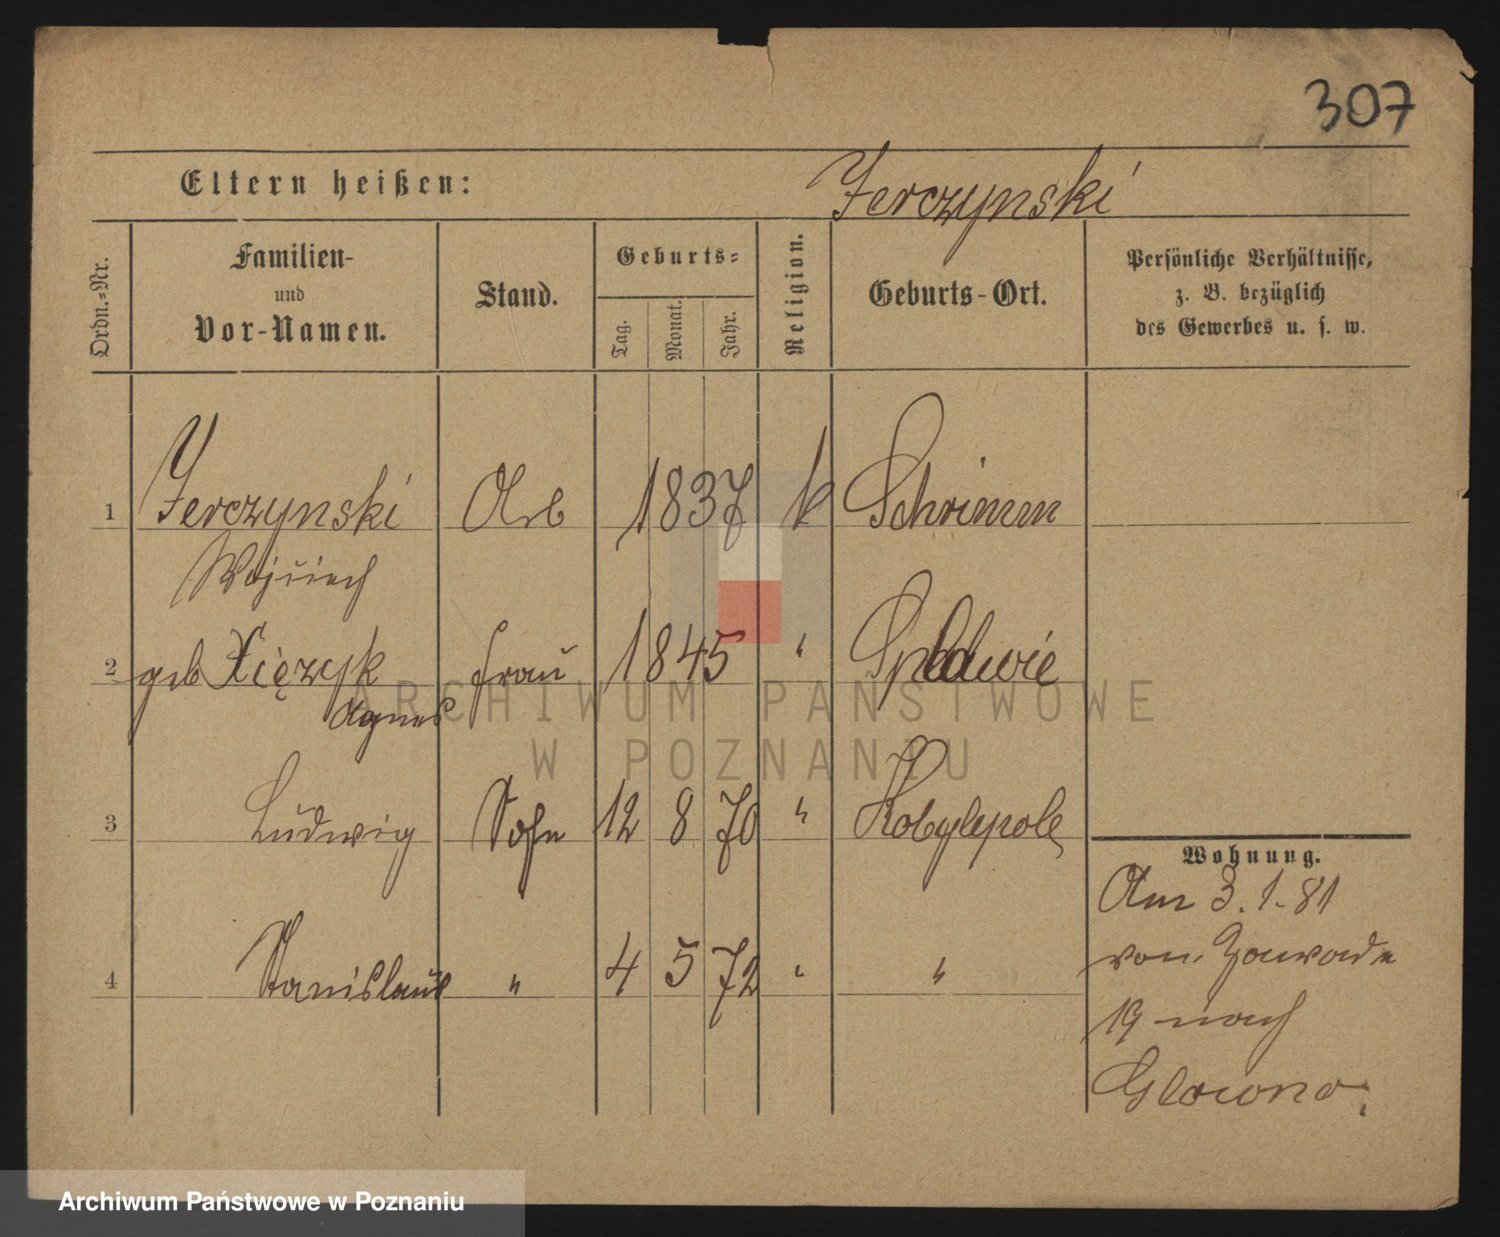 307
Eltern heißen: Jerczynski
Ordn.=Nr.
Familien-
und
Vor-Namen.
Stand.
Geburts=
Tag.
Monat.
Jahr.
Religion.
Geburts-Ort.
Persönliche Verhältnisse,
z. B. bezüglich
des Gewerbes u. s. w.
1 Jerczynski Arb 1837 k Schrimm
Wojciech
2 geb Xięzyk frau 1845 " Spladwie
Agnes
3 Ludwig Sohn 12 8 70 " Kobylepole
4 Stanislaus " 4 5 72 " "
Wohnung.
Am 3. 1. 81
von Zawade
19 nach
Glowno.
ARCHIWUM PAŃSTWOWE
W POZNANIU
Archiwum Państwowe w Poznaniu